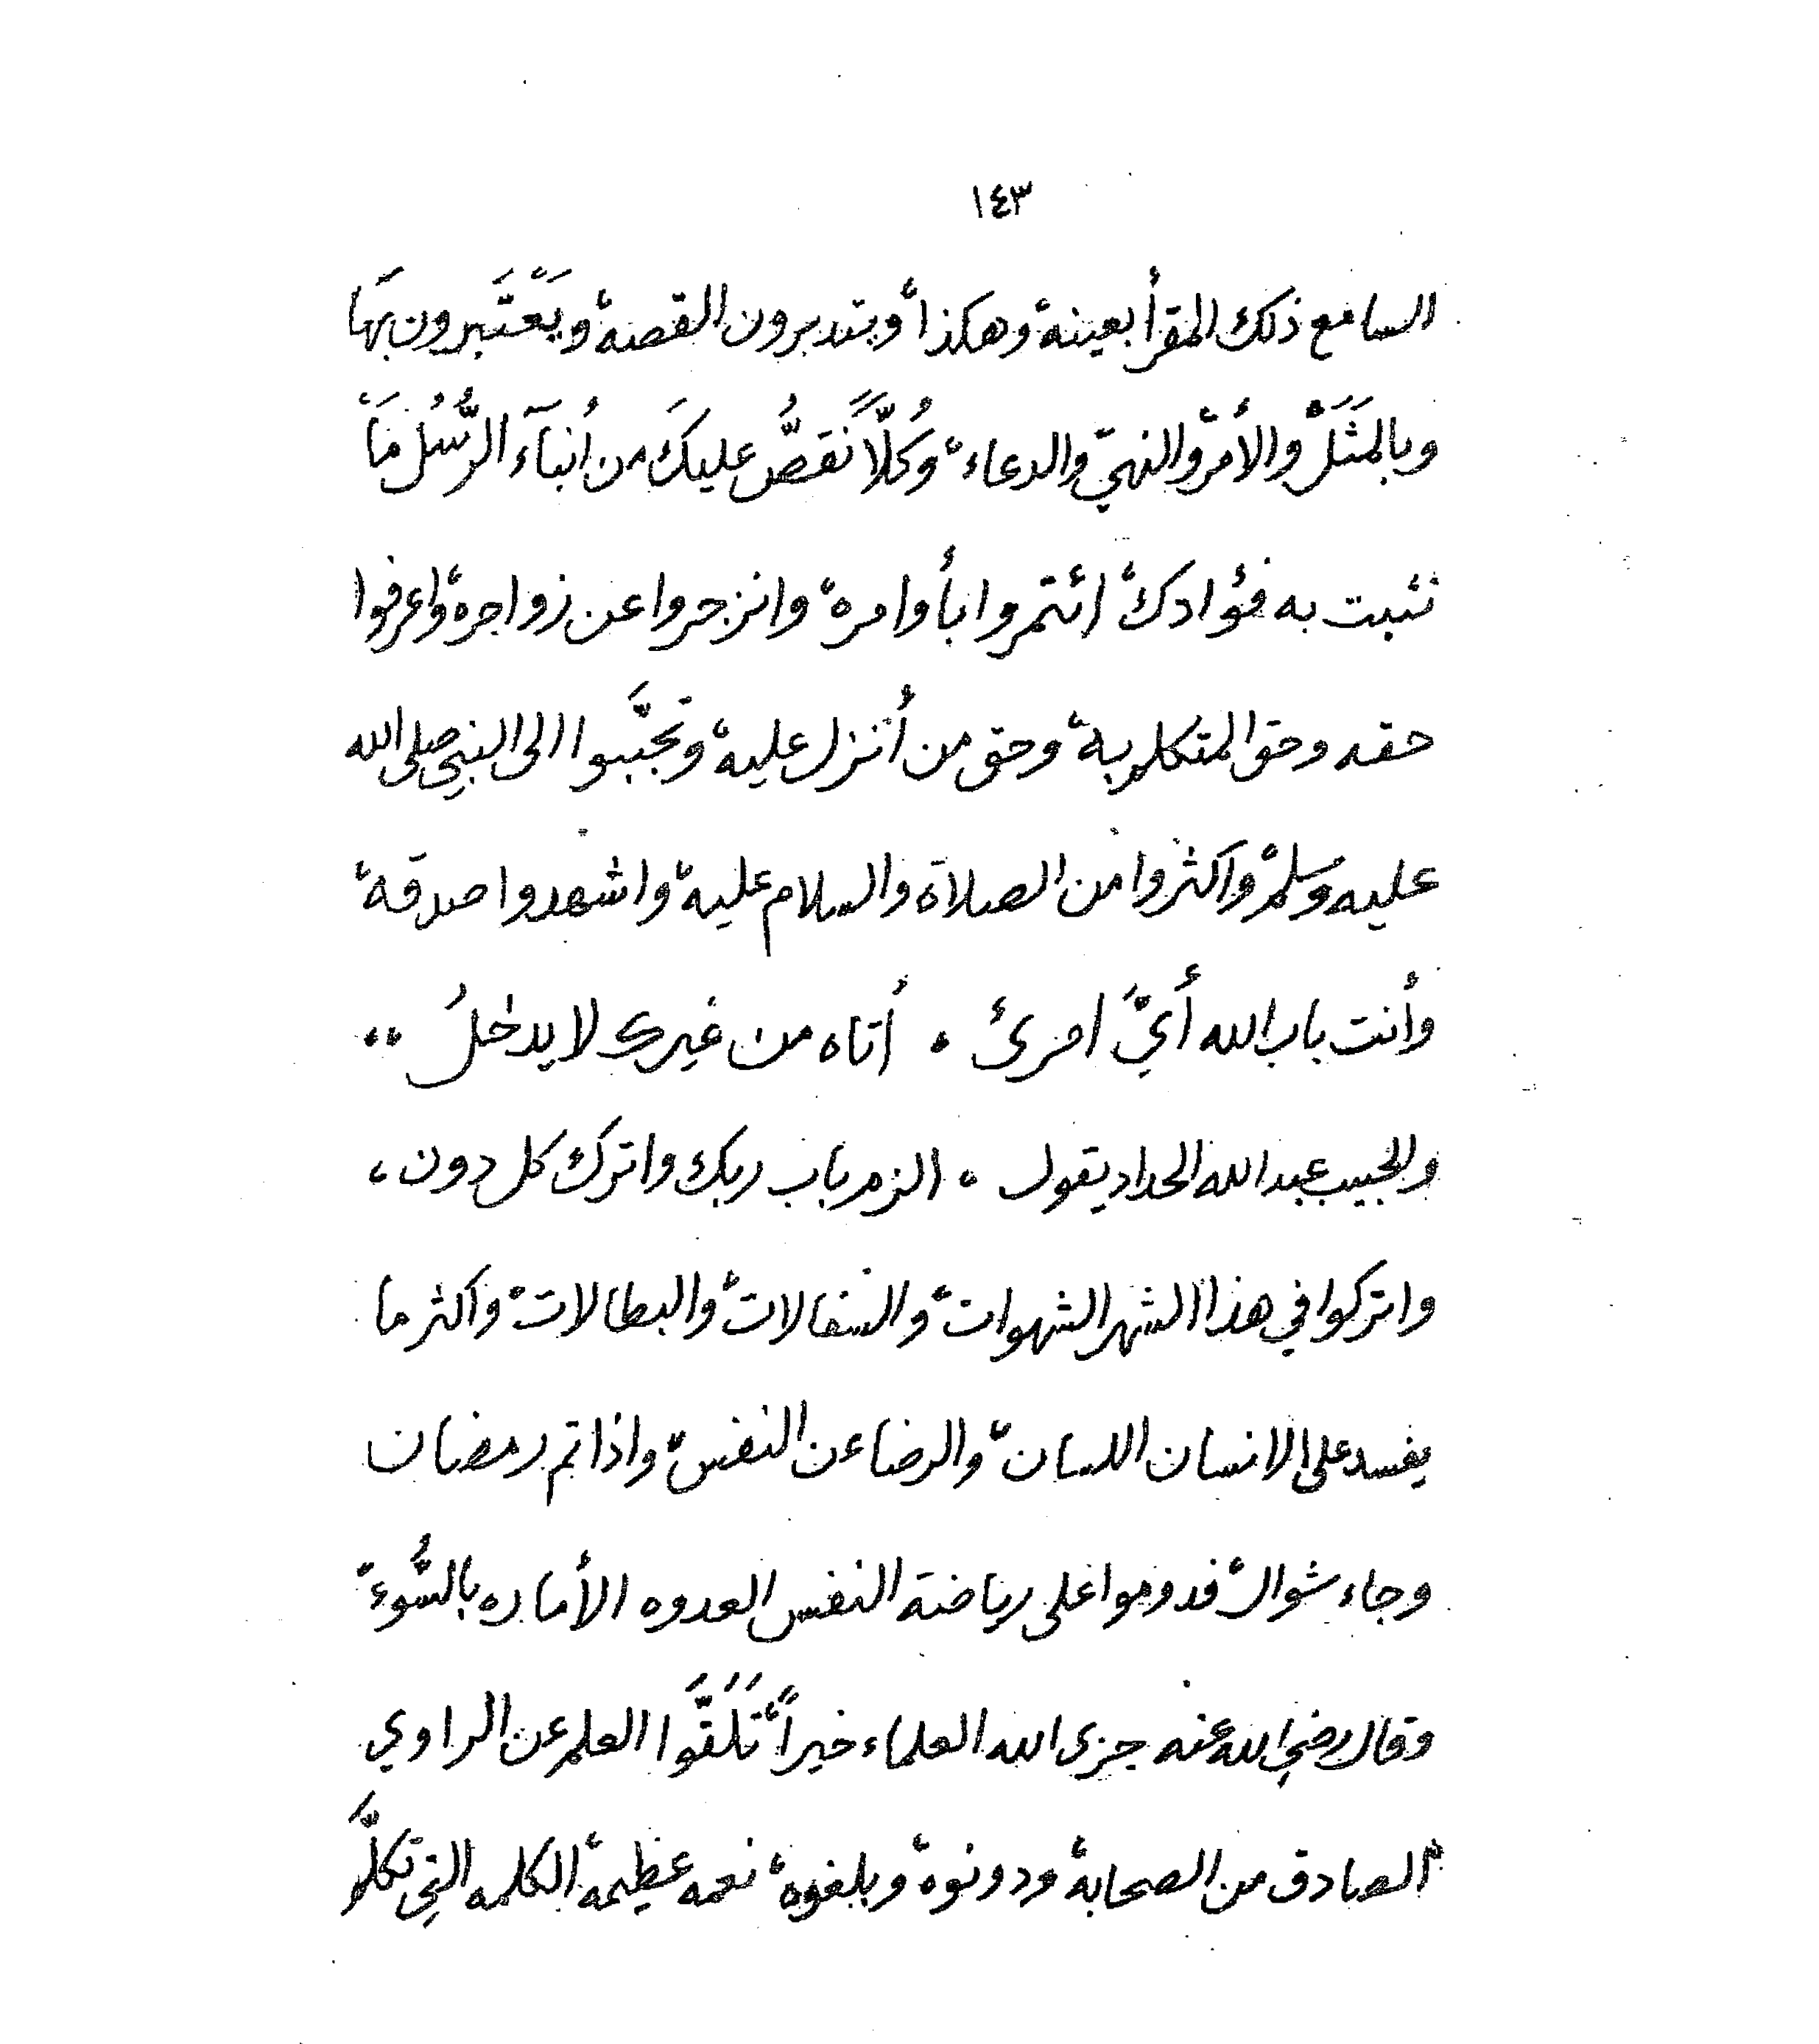 ١٤٣
السامع ذلك المقرأ بعينه، وهكذا، ويتدبرون القصه، ويَعْتَبِرون بَها
وبالمَثَلْ، والأمرْ، والنهيّ، والدعاء، وَكُلّاً نَقصُّ عليكَ من أُنبآء الرُّسُل مَا
نثبت به فؤادك، ائتمروا بأوامره، وانزجروا عن زواجره، واعرفوا
حقه وحق المتكلم به، وحق من أُنزل عليه، وتحَبَّبوا الى النبي صلى الله
عليه وسلم، وآكثروا من الصلاة والسلام عليه، واشهدوا صدقه،
وأنت باب الله أيُّ امرئ • أتاه من غيرك لا يدخلُ ..
والحبيب عبد الله الحداد يقول • الزم باب ربك واترك كل دون،
واتركوا في هذا الشهر الشهوات، والسفالات، والبطالات، وآكثر ما
يفسد على الانسان اللسان، والرضا عن النفس، واذا تم رمضان
وجاء شوال، فدوموا على رياضة النفس العدوه الأماره بالسُّوء،
وقال رضي الله عنه جزى الله العلماء خيراً، تَلَقَّوا العلم عن الراوي
الصادق من الصحابة، ودونوه، وبلغوه، نعمه عظيمه، الكلمه التي تكلَّم